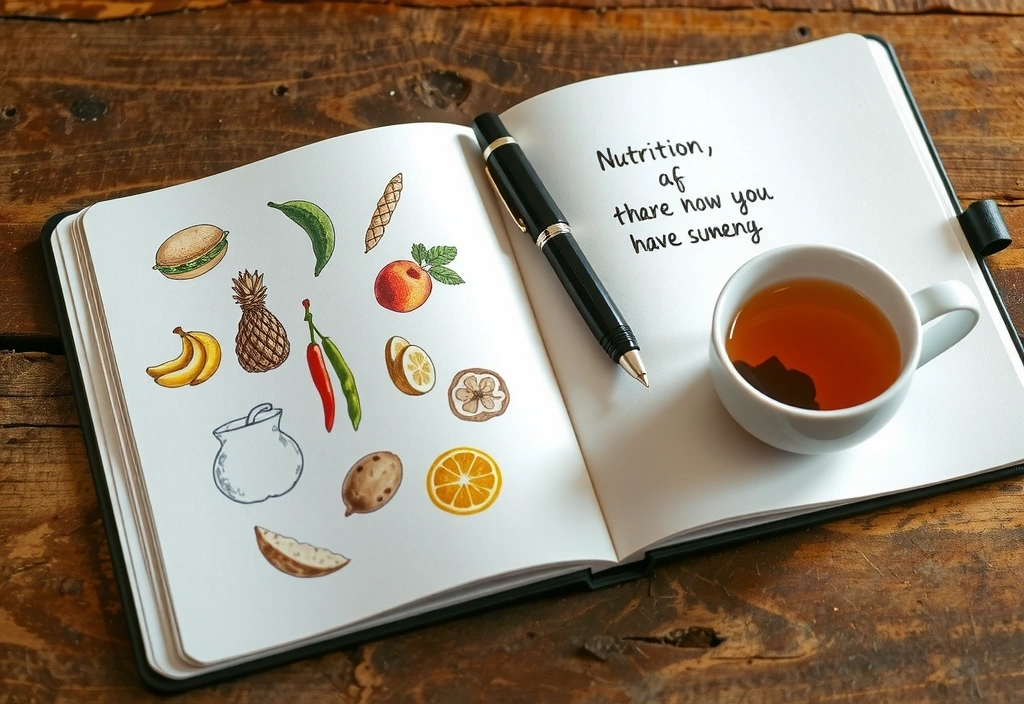 Nutrition,
af
thare now you
have sumeng